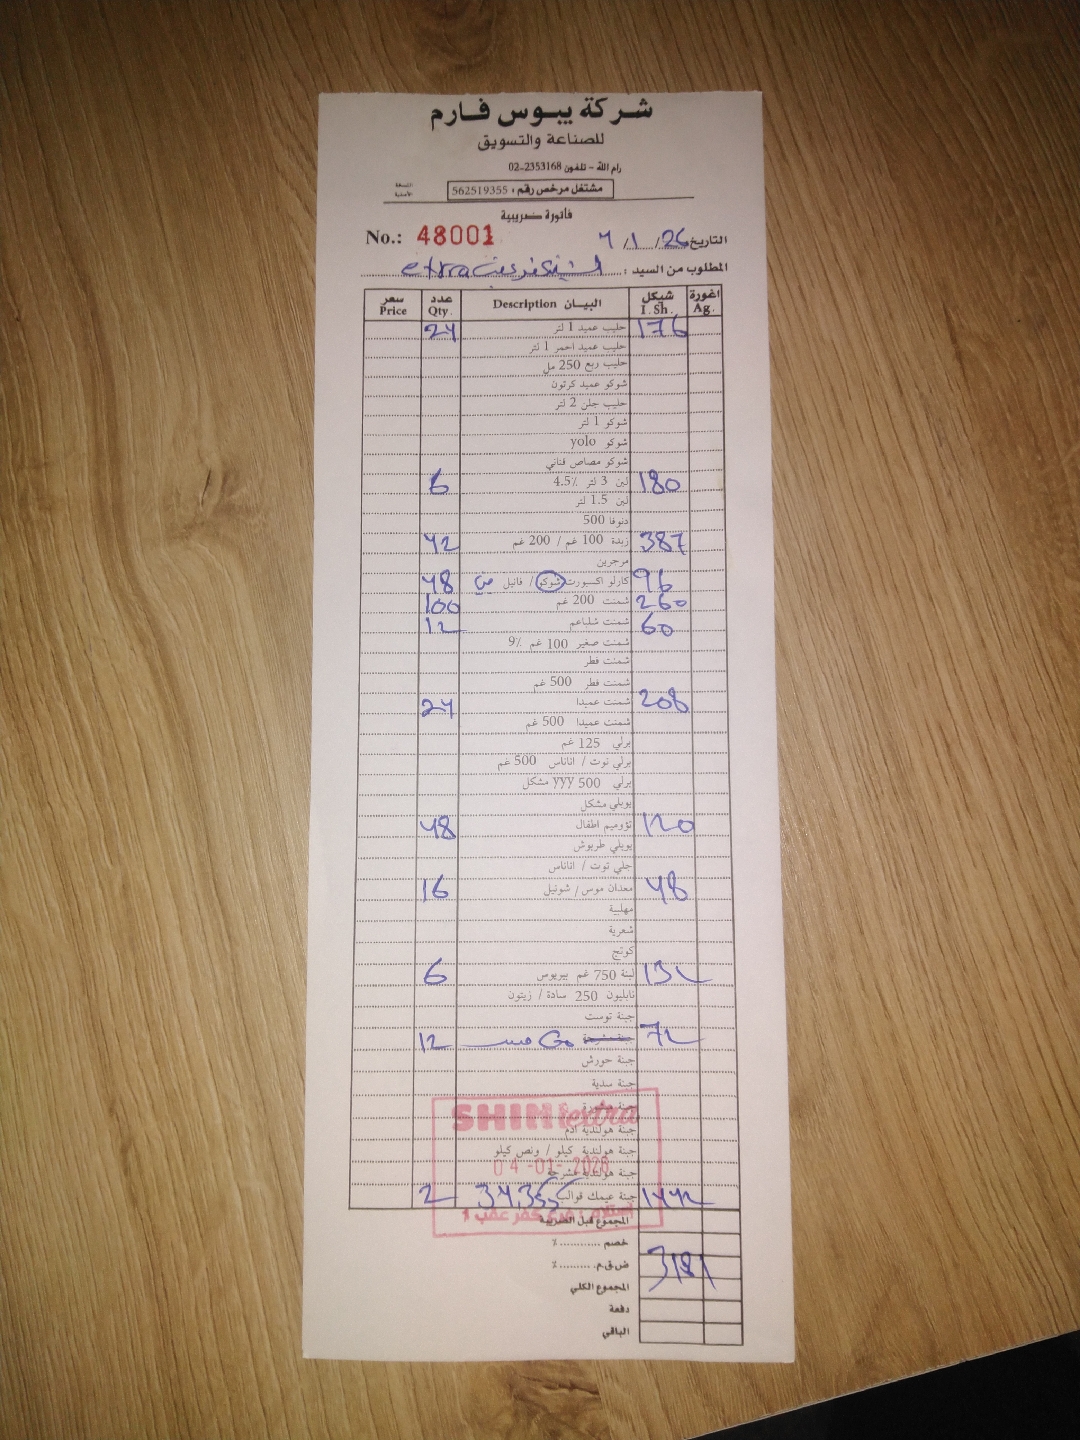 شركة يبوس فارم
للصناعة والتسويق
رام الله - تلفون 02-2353168
مشتغل مرخص رقم : 562519355
النسخة الأصلية
فاتورة ضريبية
No.: 48001
التاريخ 4/1/26
المطلوب من السيد : extra
سعر Price عدد Qty. البيـان Description شيكل I. Sh. اغورة Ag.
24 حليب عميد 1 لتر 176
حليب عميد احمر 1 لتر
حليب ربع 250 مل
شوكو عميد كرتون
حليب جلن 2 لتر
شوكو 1 لتر
شوكو yolo
شوكو مصاص قناني
6 لبن 3 لتر 4.5٪ 180
لبن 1.5 لتر
دنوفا 500
42 زبدة 100 غم / 200 غم 387
مرجرين
48 كارلو اكسبورت شوكو / فانيل 96
100 شمنت 200 غم 260
12 شمنت شلباعم 60
شمنت صغير 100 غم 9٪
شمنت فطر
شمنت فطر 500 غم
24 شمنت عميدا 208
شمنت عميدا 500 غم
برلي 125 غم
برلي توت / اناناس 500 غم
برلي 500 yyy مشكل
يوبلي مشكل
48 تؤوميم اطفال 120
يوبلي طربوش
جلي توت / اناناس
16 معدان موس / شونيل 48
مهلبية
شعرية
كوتج
6 لبنة 750 غم بيريوس 132
نابليون 250 سادة / زيتون
جبنة توست
12 72
جبنة حورش
جبنة سدية
جبنة
جبنة هولندية ادم
جبنة هولندية كيلو / ونص كيلو
جبنة هولندية مشرحة
2 34,355 جبنة عيمك قوالب 1442
SHINI extra
04-01-2026
استلام : فرع كفر عقب
المجموع قبل الضريبة
خصم ............ ٪
ض.ق.م. ......... ٪ 3181
المجموع الكلي
دفعة
الباقي